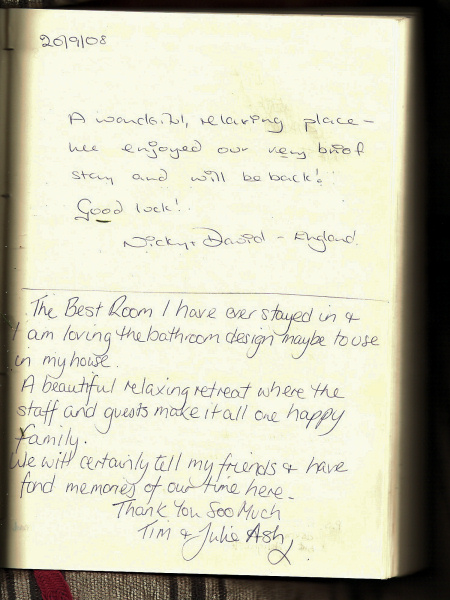 20/9/08
A wonderful, relaxing place -
we enjoyed our very brief
stay and will be back!
Good luck!
Nicky + David - England.
The Best Room I have ever stayed in &
I am loving the bathroom design maybe to use
in my house.
A beautiful relaxing retreat where the
staff and guests make it all one happy
family.
We will certainly tell my friends & have
fond memories of our time here.
Thank You Soo Much
Tim & Julie Ash